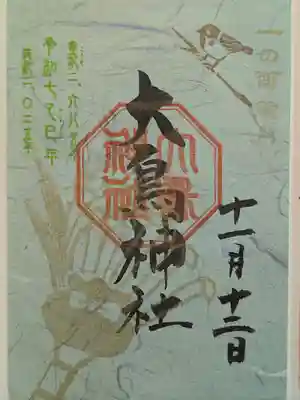 一の酉
十一月十二日
大鳥神社
皇紀二、六八五年
令和七乙巳年
西暦二〇二五年